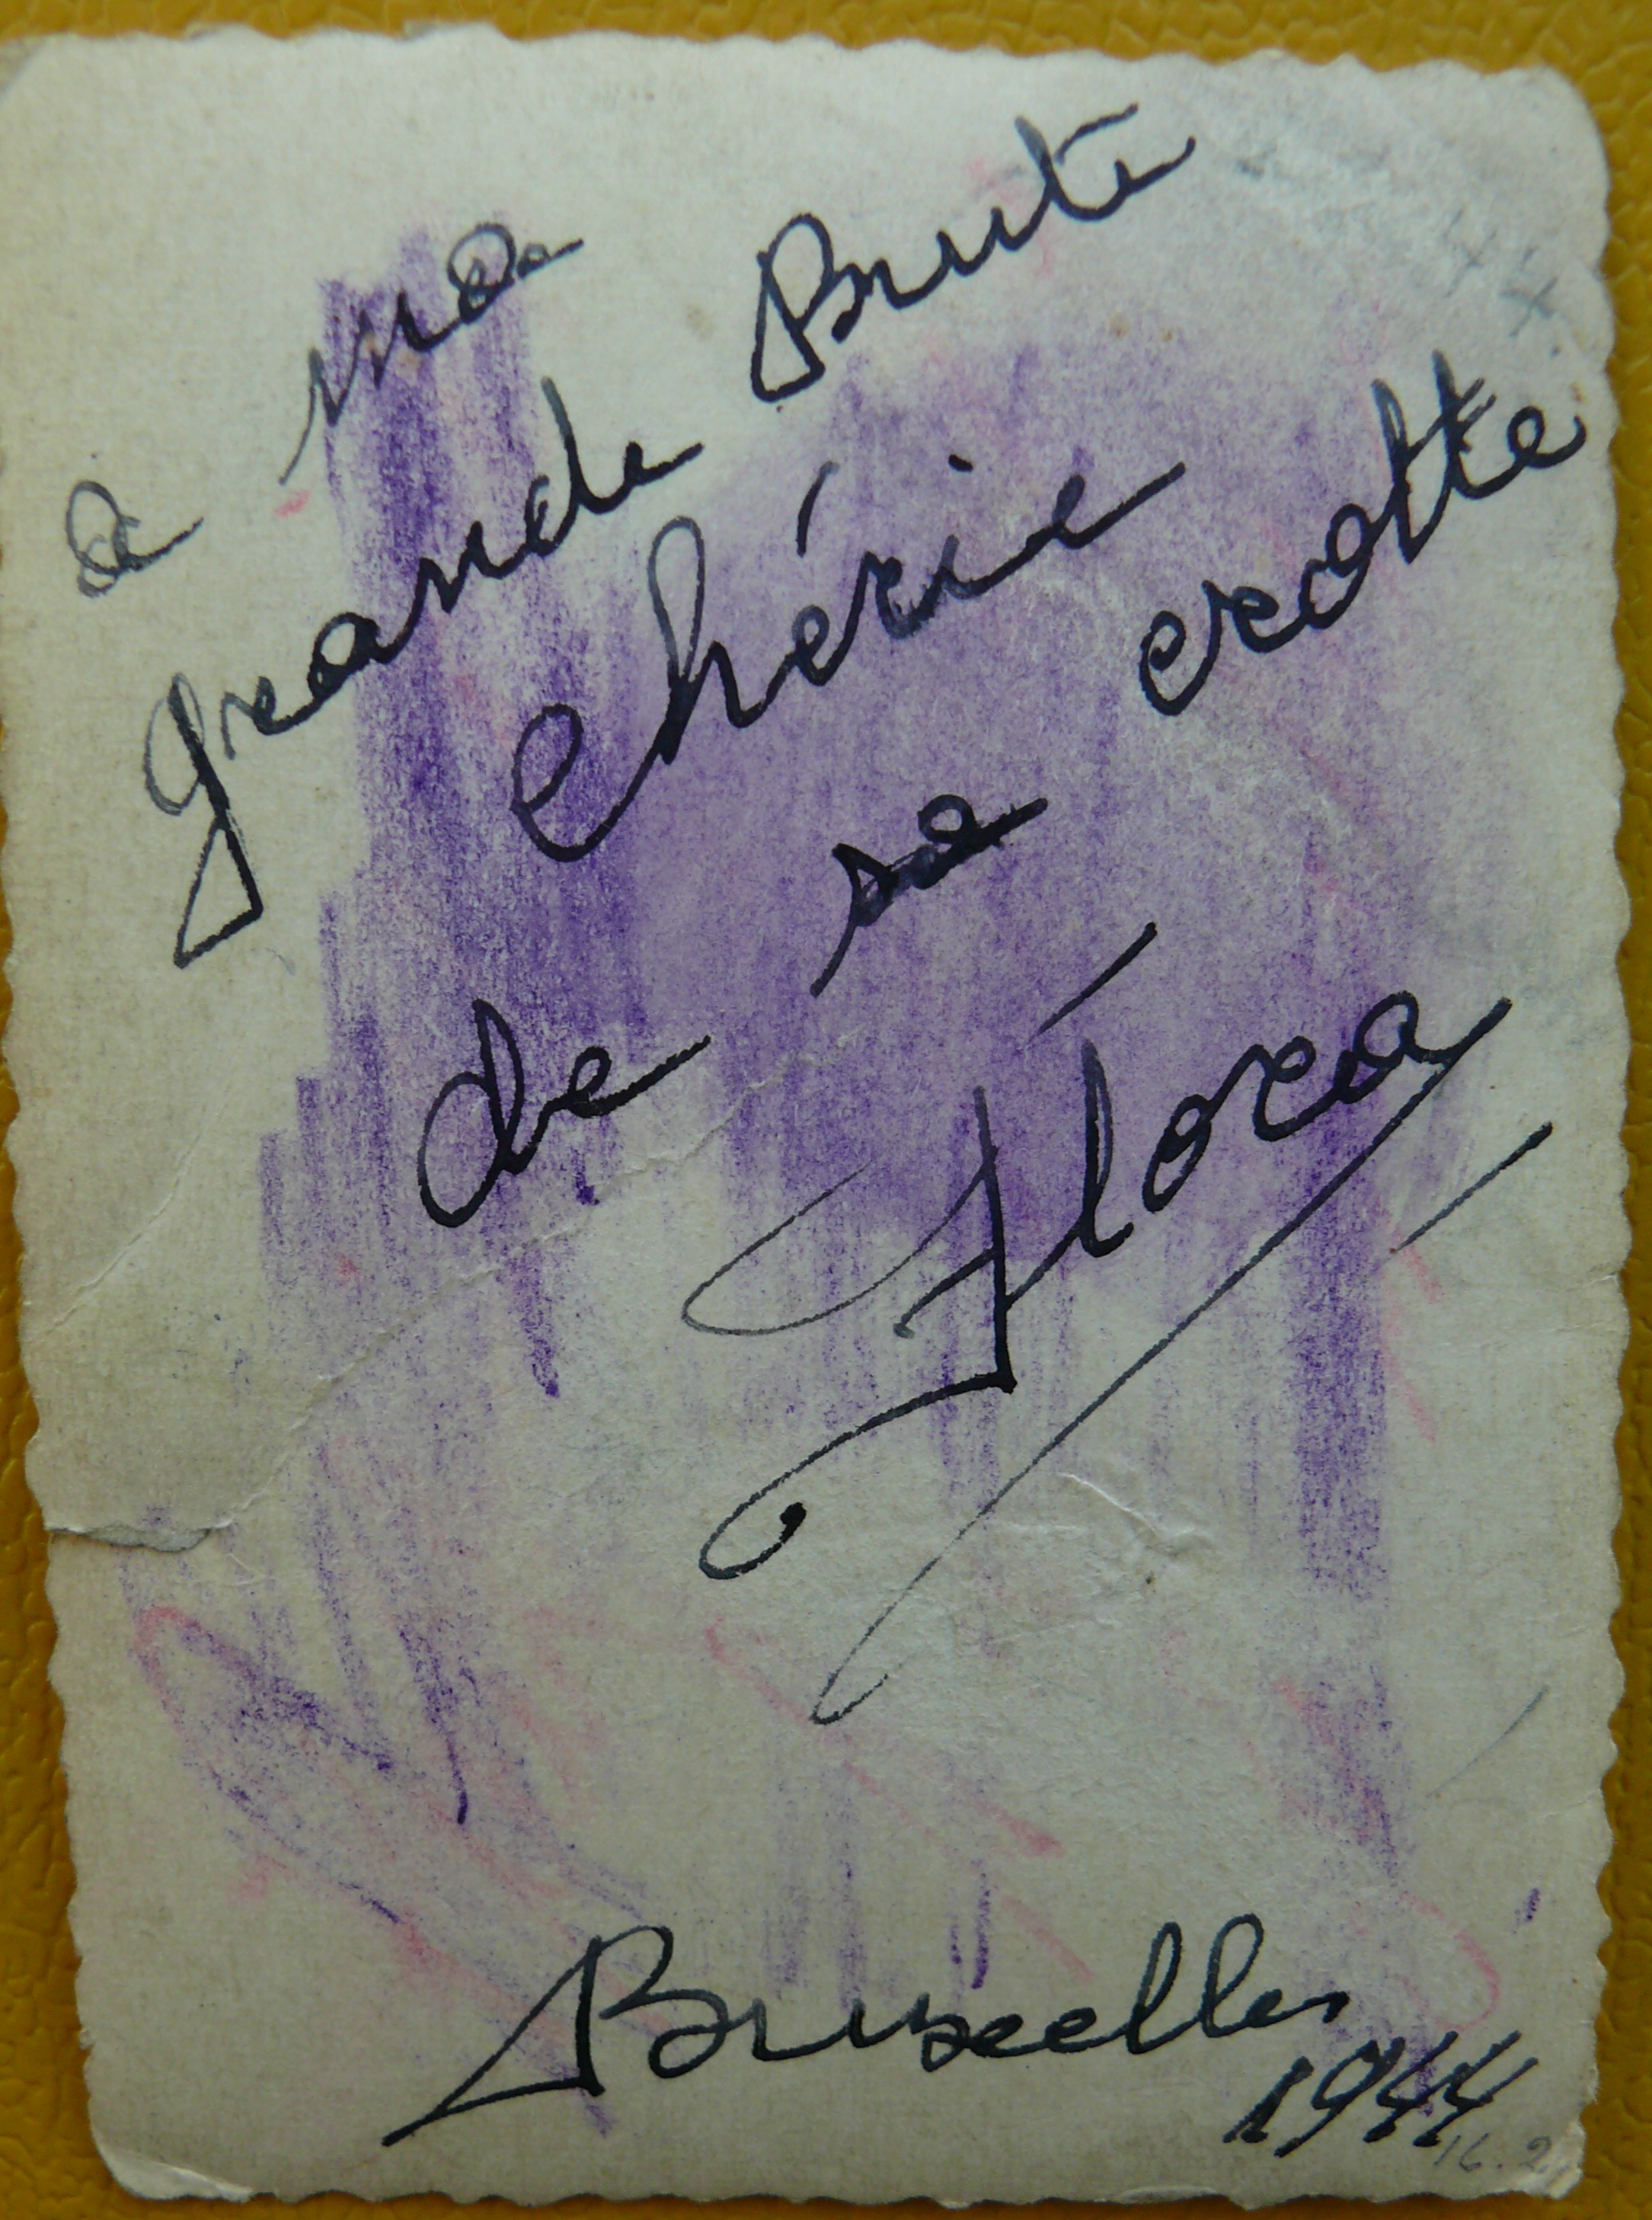 a ma
grande Brute
chérie
de sa crotte
Flora
Bruxelles
1944
16.2